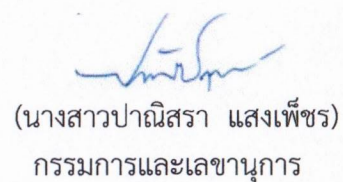 (นางสาวปาณิสรา แสงเพ็ชร)
กรรมการและเลขานุการ